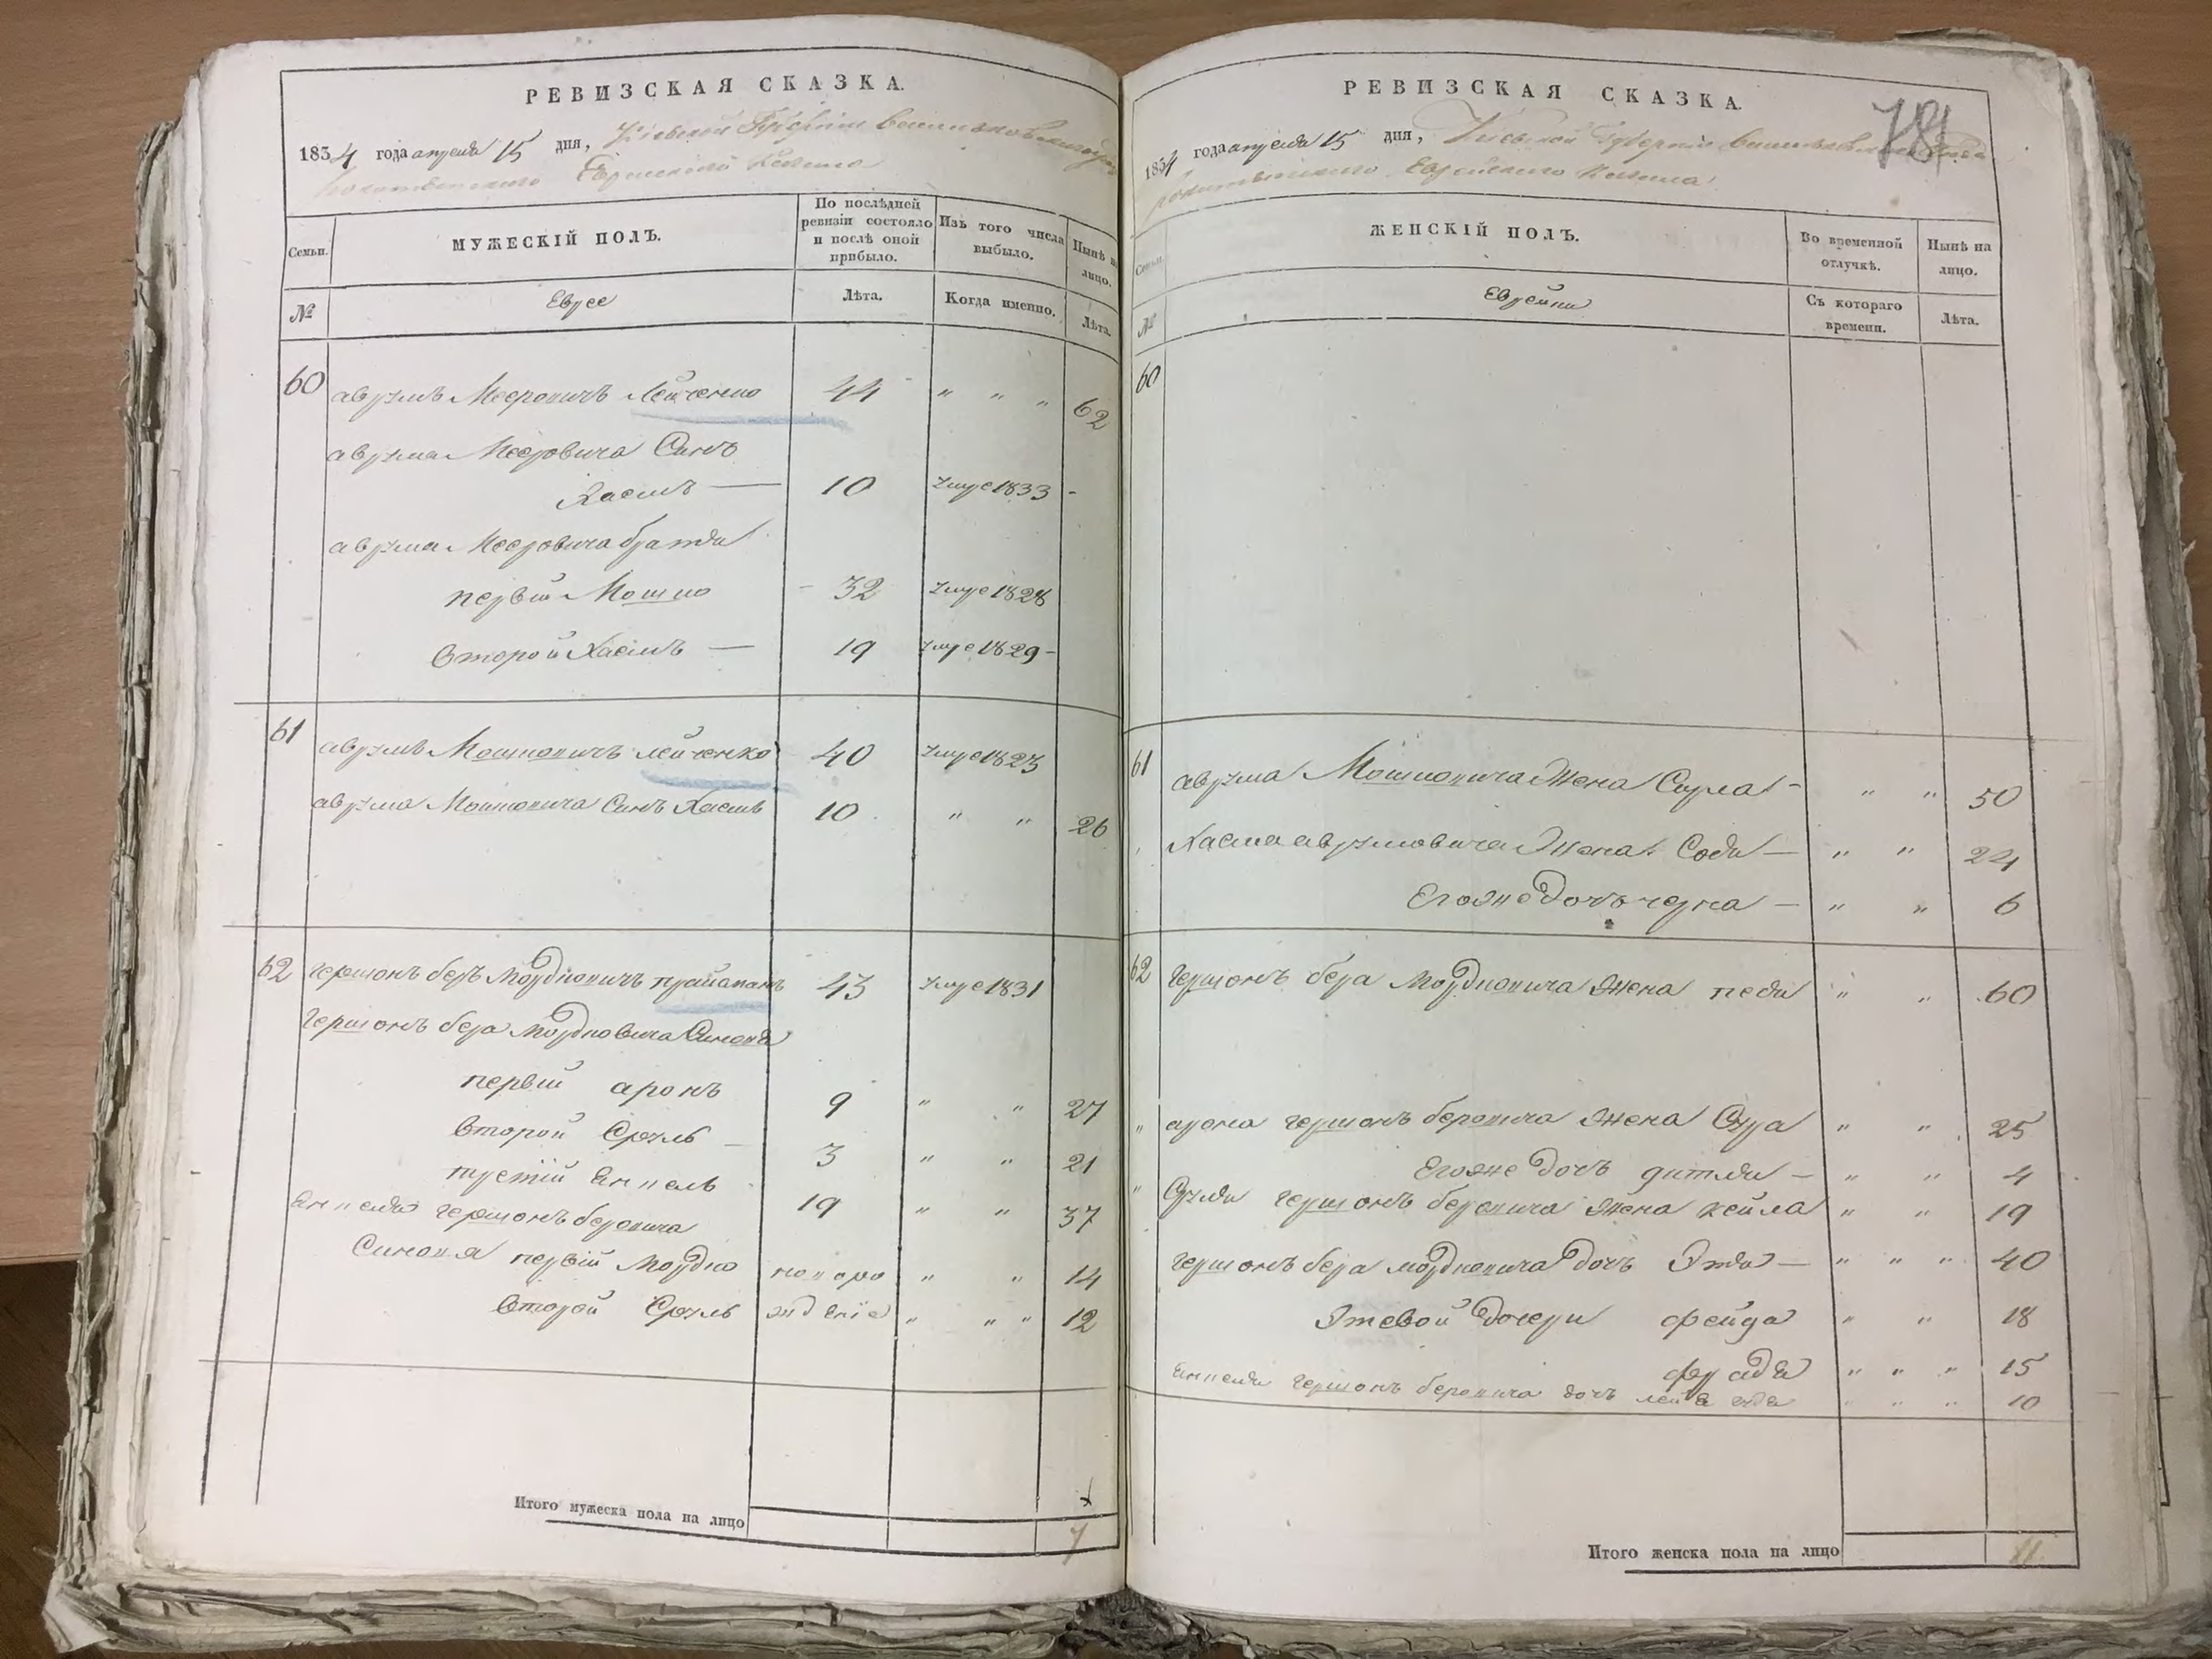 РЕВИЗСКАЯ СКАЗКА.
1834 года апреля 15 дня, Кіевской Губерніи
Еврейского Кагала
Семьи.
МУЖЕСКІЙ ПОЛЪ.
По послѣдней ревизіи состояло и послѣ оной прибыло.
Изъ того числа выбыло.
Нынѣ на лицо.
№
Евреe
Лѣта.
Когда именно.
Лѣта.
60 аврумъ Мееровичъ Лейченко 44 " " " 62
аврума Мееровича Синъ
Хаемъ — 10 умре 1833 -
аврума Мееровича братя
первій Мошко 32 умре 1828
Второй Хаемъ — 19 умре 1829 -
61 аврумъ Мошковичъ лейченко 40 умре 1823
аврума Мошковича Синъ Хаемъ 10 " " 26
62 гершонъ беръ Мордковичъ 43 умре 1831
гершонъ бера Мордковича Синовя
первій аронъ 9 " " 27
Второй Сруль — 3 " " 21
третій Янкель 19 " " 37
Янкеля гершонъ беровича
Синовя первій Мордко новоро " " 14
Второй Сруль жденіе " " " 12
Итого мужеска пола на лицо 7
РЕВИЗСКАЯ СКАЗКА.
781
1834 года апреля 15 дня, Кіевской Губерніи
Еврейского Кагала
Семьи.
ЖЕНСКІЙ ПОЛЪ.
Во временной отлучкѣ.
Нынѣ на лицо.
№
Еврейки
Съ котораго времени.
Лѣта.
60
61 аврума Мошковича Жена Сурла - " " 50
Хаема аврумовича Жена Содя — " " 24
Егоже Дочь черна — " " 6
62 Гершонъ бера Мордковича Жена песя " " 60
" арона гершонъ беровича Жена Сура " " 25
Егоже Дочь дитля — " " 4
" Сруля гершонъ беровича Жена кейла " " 19
гершонъ бера мордковича Дочь Этя — " " " 40
Этевой Дочери фейга " " 18
" " " 15
Янкеля гершонъ беровича дочь " " " 10
Итого женска пола на лицо 11